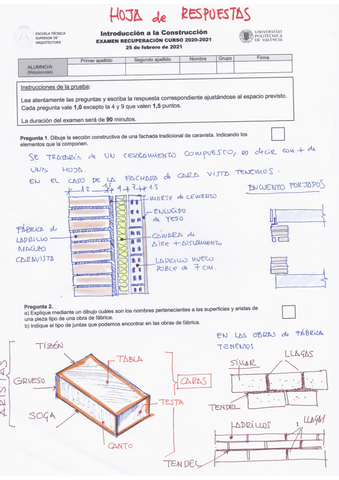 HOJA de RESPUESTAS
ESCUELA TÉCNICA
SUPERIOR DE
ARQUITECTURA
Introducción a la Construcción
EXAMEN RECUPERACIÓN CURSO 2020-2021
25 de febrero de 2021
UNIVERSITAT
POLITÈCNICA
DE VALÈNCIA
Primer apellido Segundo apellido Nombre Grupo Firma
ALUMNO/A
(Mayúsculas)
Instrucciones de la prueba:
Lea atentamente las preguntas y escriba la respuesta correspondiente ajustándose al espacio previsto.
Cada pregunta vale 1,0 excepto la 4 y 9 que valen 1,5 puntos.
La duración del examen será de 90 minutos.
Pregunta 1. Dibuje la sección constructiva de una fachada tradicional de caravista. Indicando los
elementos que la componen.
SE TRATARÍA DE UN CERRAMIENTO COMPUESTO, es decir con + de
UNA HOJA.
EN EL CASO DE LA FACHADA DE CARA VISTA TENEMOS:
ENCUENTRO FORJADOS
MORTE DE CEMENTO
ENLUCIDO
DE YESO
FÁBRICA DE
LADRILLO
MACIZO
CARAVISTA
CÁMARA DE
AIRE + AISLAMIENTO
LADRILLO HUECO
DOBLE DE 7 CM.
Pregunta 2.
a) Explique mediante un dibujo cuáles son los nombres pertenecientes a las superficies y aristas de
una pieza tipo de una obra de fábrica.
b) Indique el tipo de juntas que podemos encontrar en las obras de fábrica.
EN LAS OBRAS DE FÁBRICA
TENEMOS
TIZÓN
TABLA
GRUESO
CARAS
TESTA
SOGA
CANTO
ARISTAS
LLAGAS
SILLAR
TENDEL
LADRILLOS
LLAGAS
TENDEL